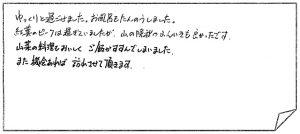 ゆっくりと過ごせました。お風呂もたんのうしました。
紅葉のピークは過ぎていましたが、山の隠れ宿のふんいきも良かったです。
山菜の料理もおいしく ご飯がすすんでしまいました。
また機会あれば 訪れさせて頂きます。